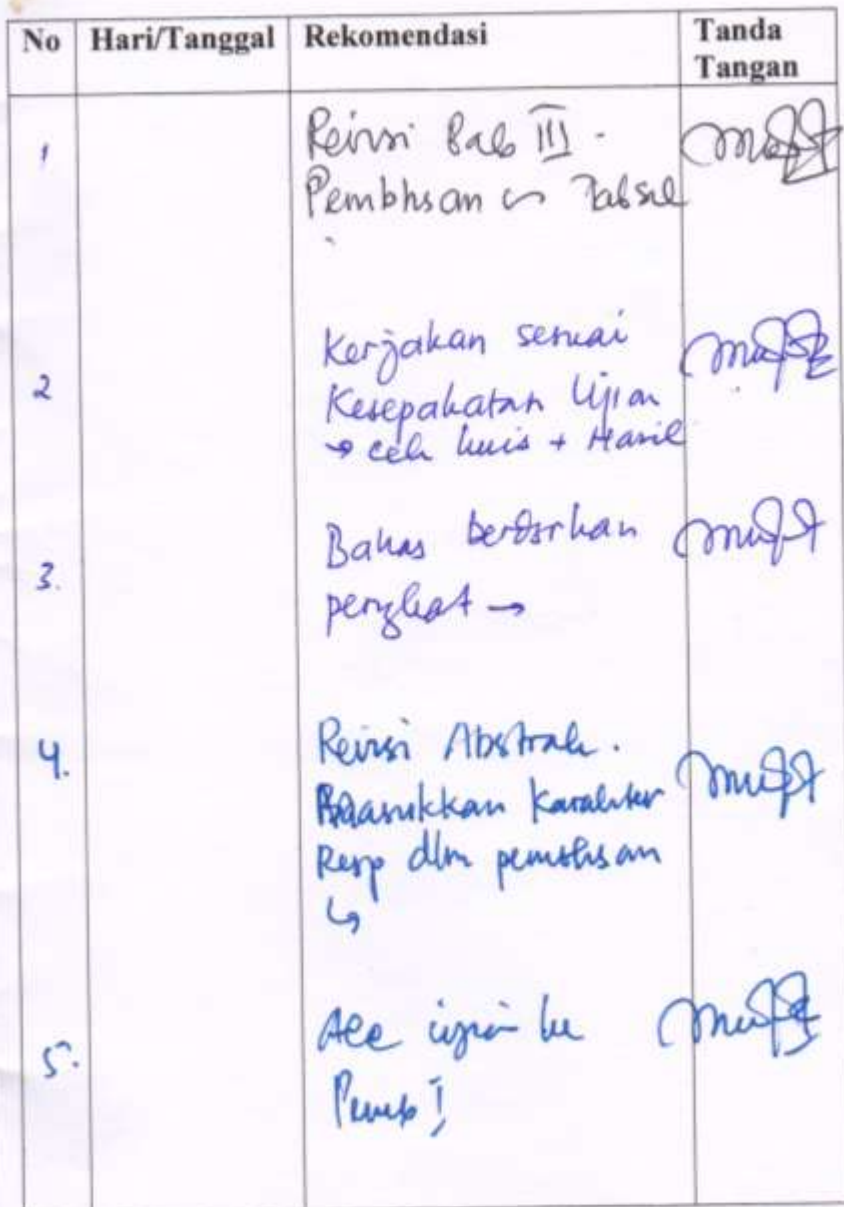 No Hari/Tanggal Rekomendasi Tanda Tangan
1 Revisi Bab III.
Pembhsan
2 Kerjakan sesuai
Kesepakatan Ujian
→ cek kuis + Hasil
3. Bahas berdsrkan
→
4. Revisi Abstrak.
Masukkan Karakter
Resp dlm pembhsan
↳
5. Acc ujian ke
Pemb I